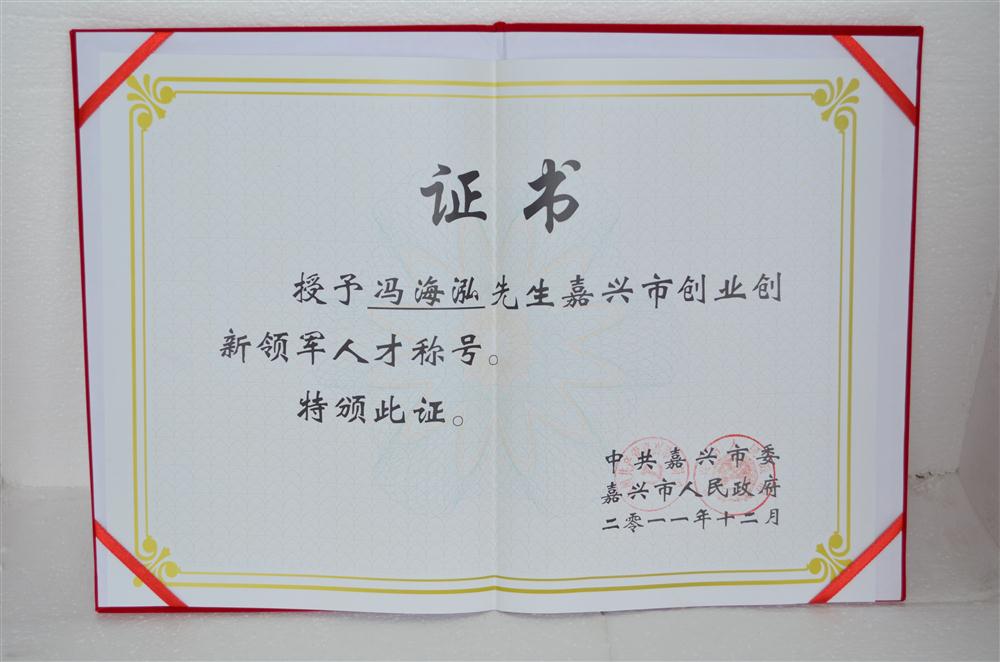 证书
授予冯海泓先生嘉兴市创业创
新领军人才称号。
特颁此证。
中共嘉兴市委
嘉兴市人民政府
二零一一年十二月